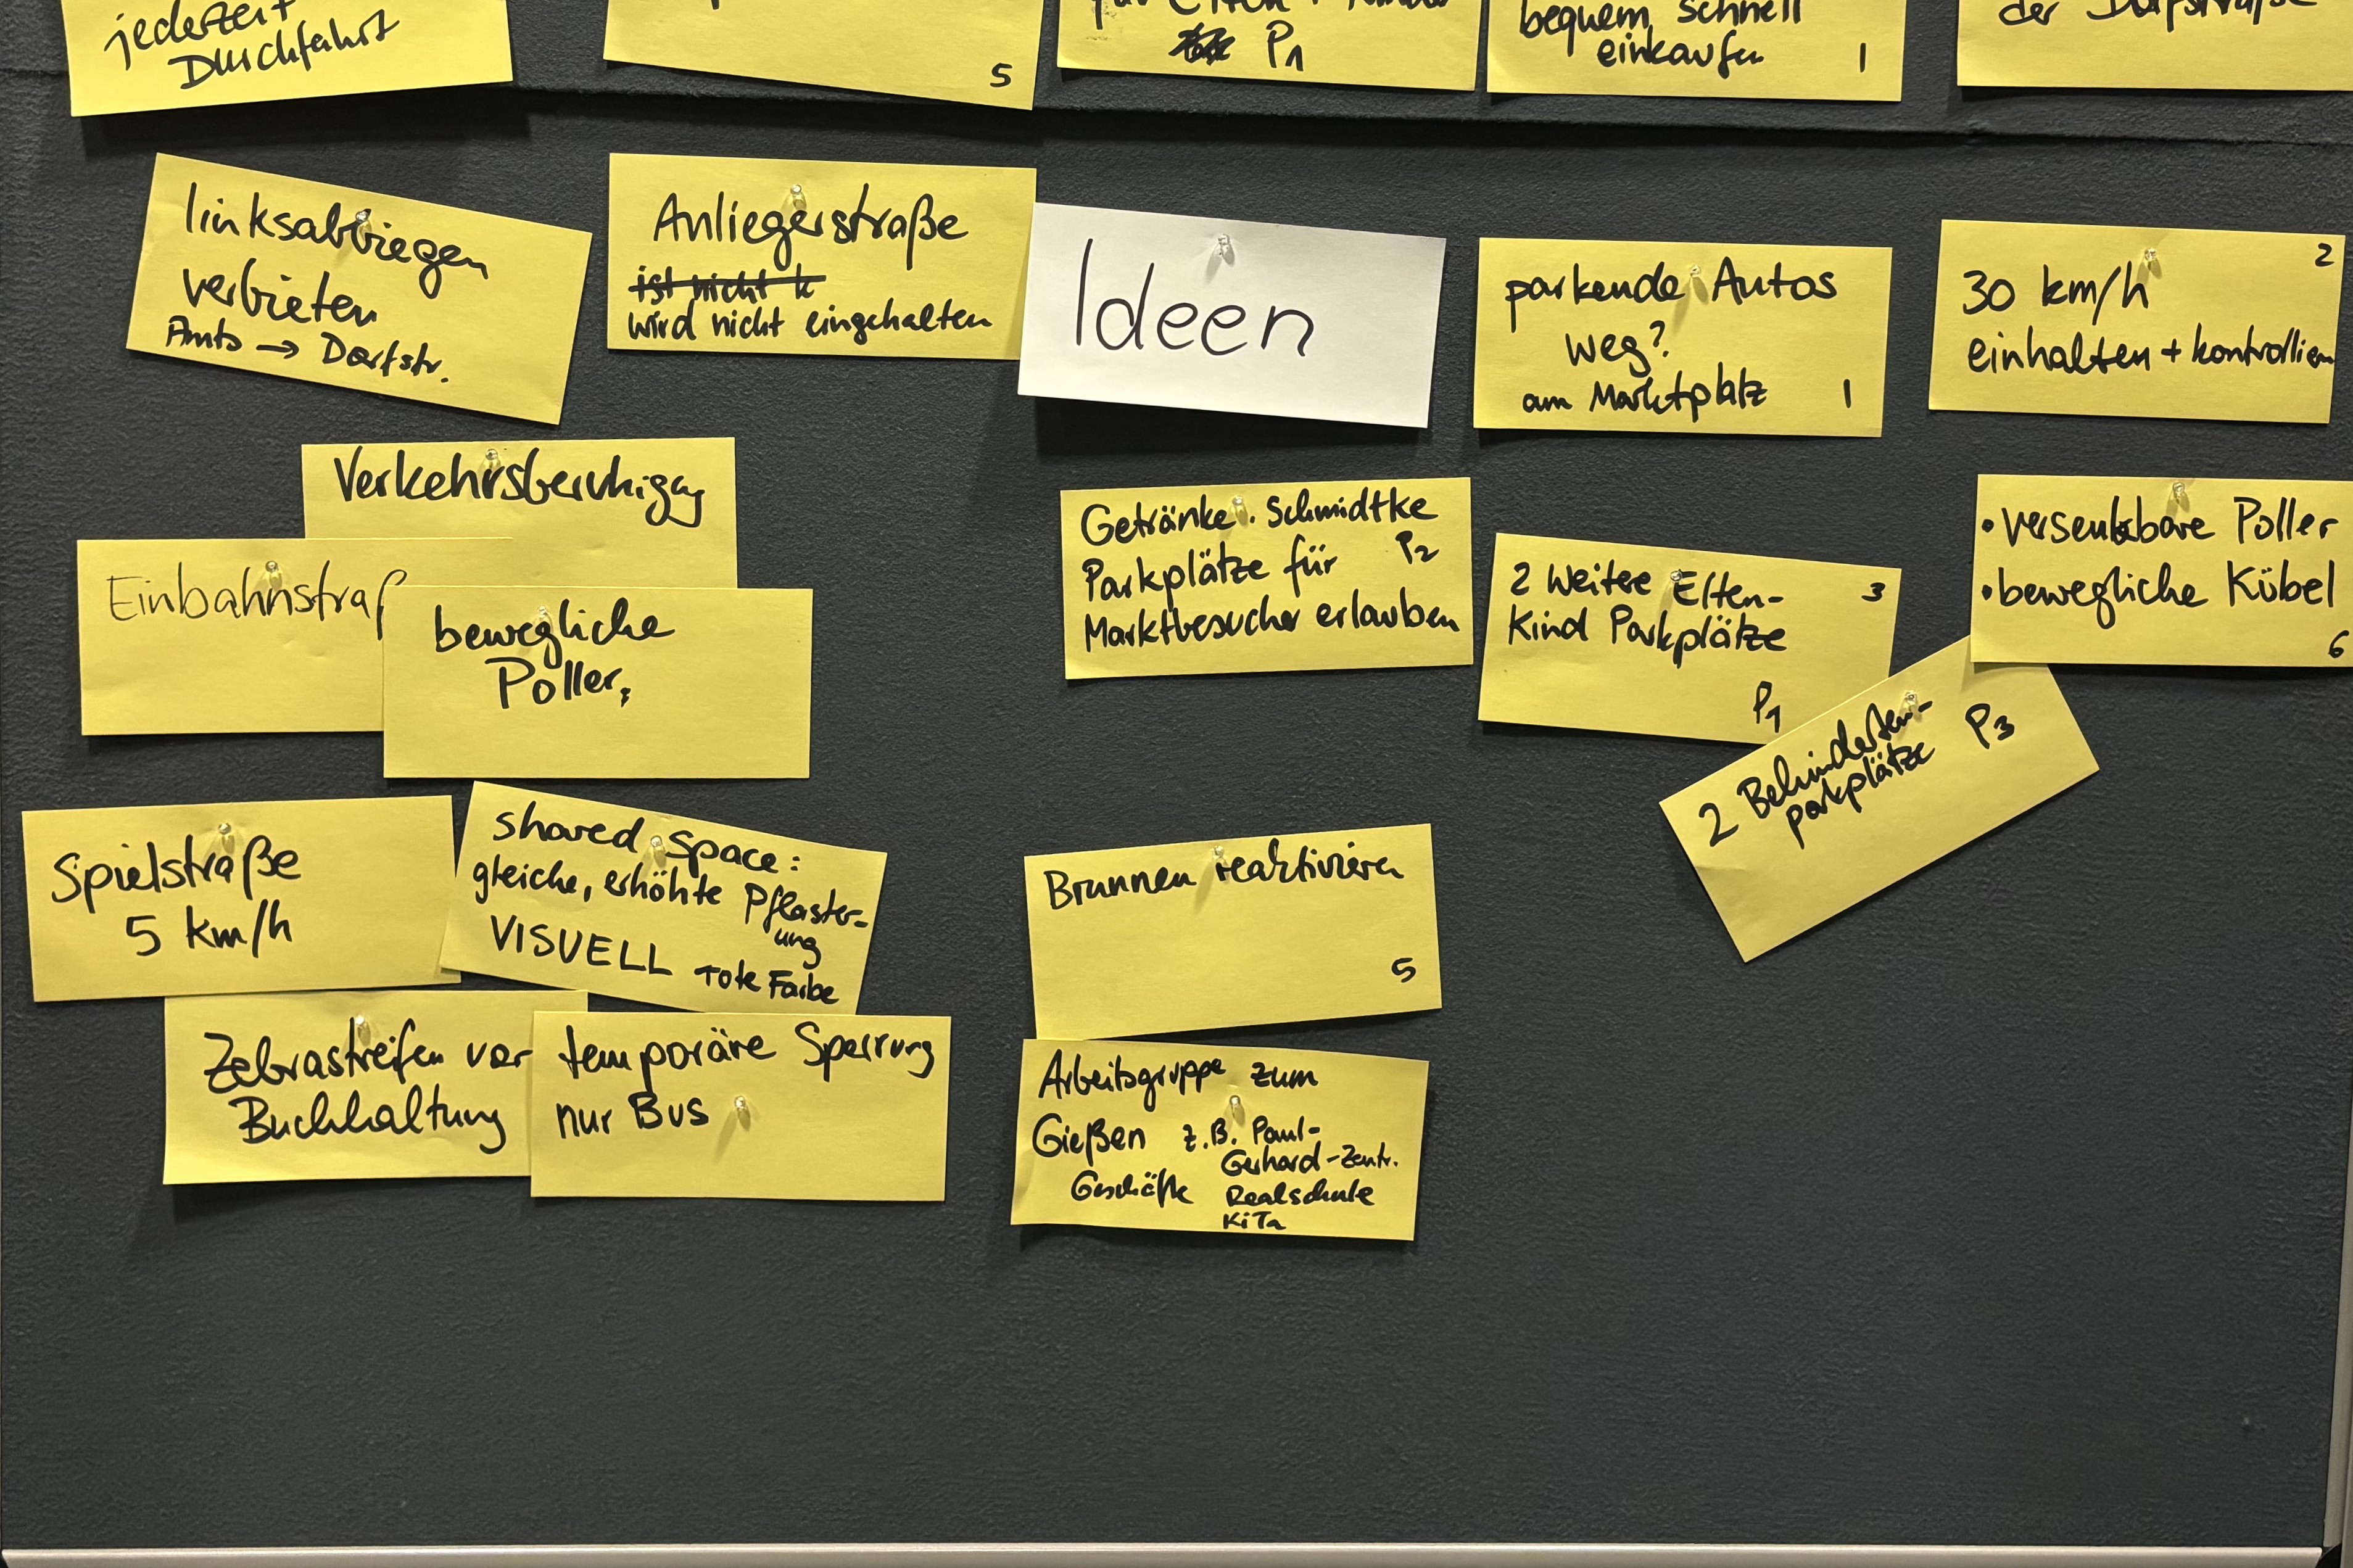 jederzeit
Durchfahrt
5
P1
bequem, schnell
einkaufen 1
der Dorfstraße
linksabbiegen
verbieten
Amts → Dorfstr.
Anliegerstraße
ist nicht k
wird nicht eingehalten
Ideen
parkende Autos
weg?
am Marktplatz 1
2
30 km/h
einhalten + kontrollieren
Verkehrsberuhigg
Einbahnstraß
bewegliche
Poller,
Getränke Schmidtke
Parkplätze für P2
Marktbesucher erlauben
2 weitere Eltern- 3
Kind Parkplätze
P1
• versenkbare Poller
• bewegliche Kübel
6
2 Behinderten-
parkplätze P3
Spielstraße
5 km/h
shared space:
gleiche, erhöhte Pflaster-
ung
VISUELL rote Farbe
Brunnen reaktivieren
5
Zebrastreifen vor
Buchhaltung
temporäre Sperrung
nur Bus
Arbeitsgruppe zum
Gießen z.B. Paul-
Gerhard-Zentr.
Geschäfte Realschule
KiTa